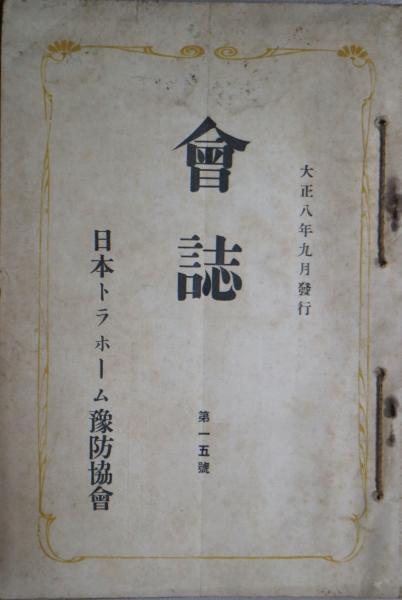 大正八年九月發行
會誌
第一五號
日本トラホーム豫防協會